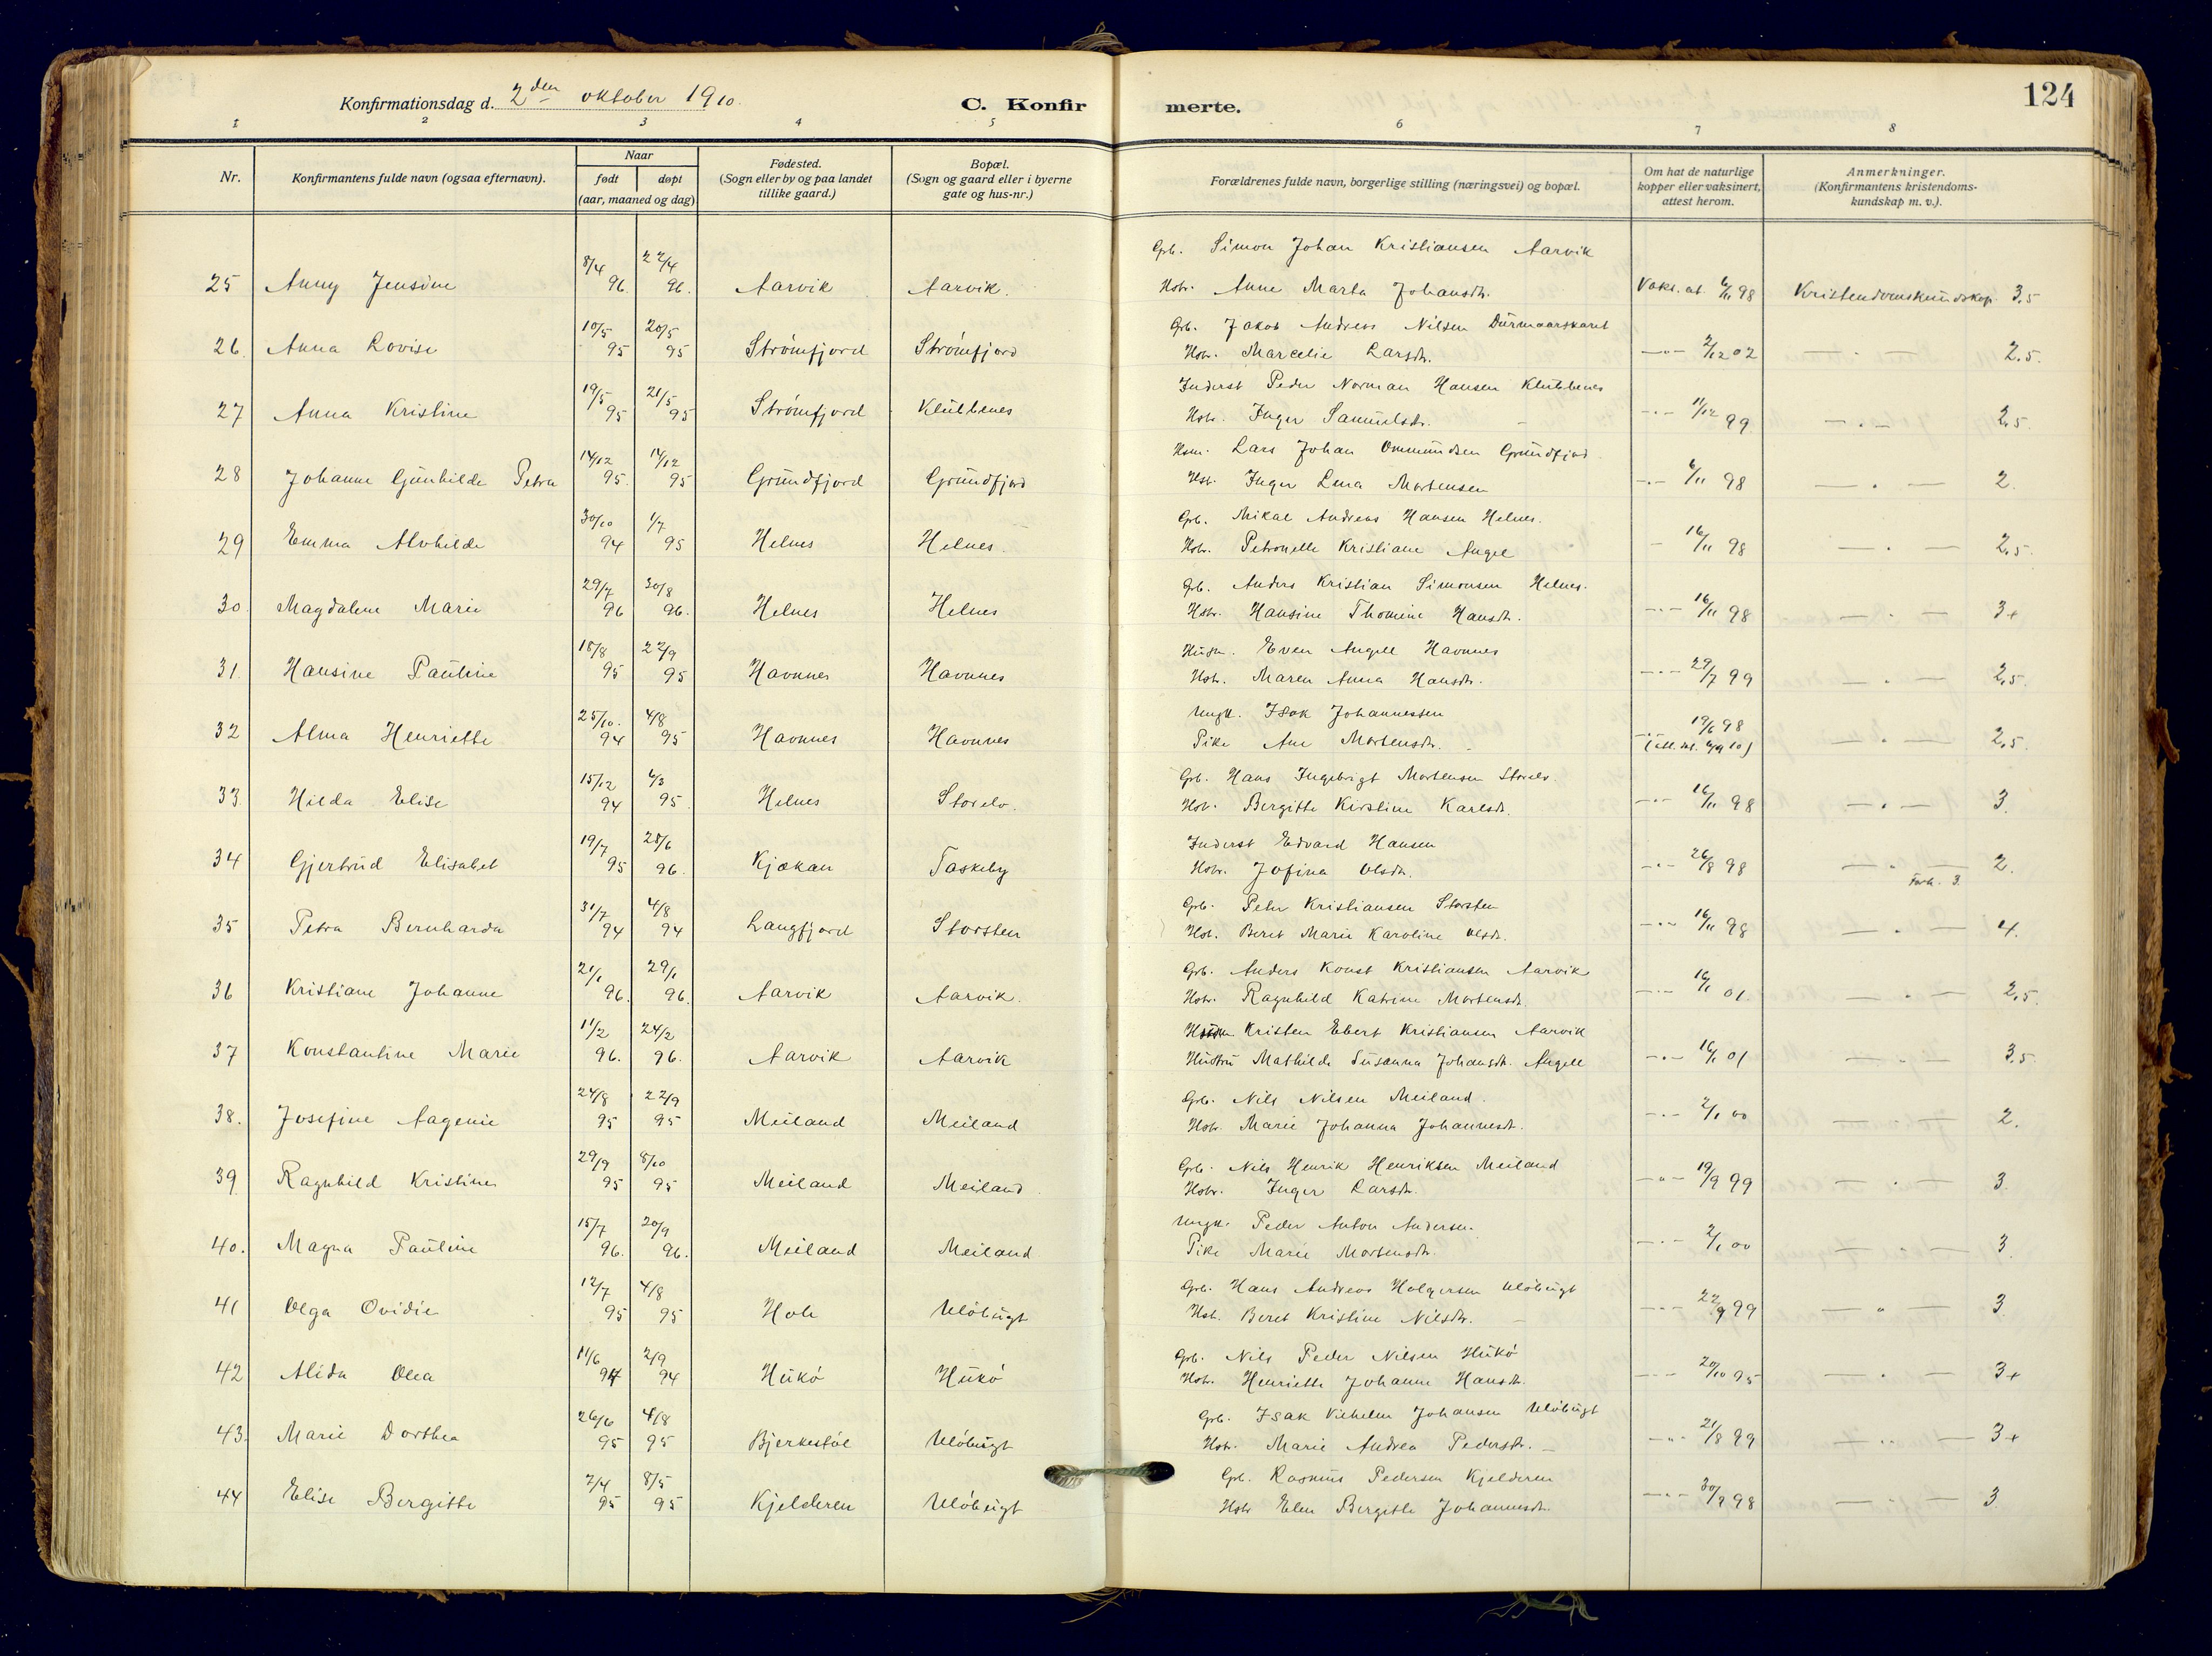 124
Konfirmationsdag d. 2den oktober 1910.
C. Konfirmerte.
1 2 3 4 5 6 7 8
Nr.
Konfirmantens fulde navn (ogsaa efternavn).
Naar
født døpt
(aar, maaned og dag)
Fødested.
(Sogn eller by og paa landet
tillike gaard.)
Bopæl.
(Sogn og gaard eller i byerne
gate og hus-nr.)
Forældrenes fulde navn, borgerlige stilling (næringsvei) og bopæl.
Om hat de naturlige
kopper eller vaksinert,
attest herom.
Anmerkninger.
(Konfirmantens kristendoms-
kundskap m. v.).
8/4 22/4 Grb. Simon Johan Kristiansen Aarvik
25 Anny Jensine 96. 96. Aarvik Aarvik. Hstr. Anne Marta Johansdtr. Vaks. at. 6/11 98 Kristendomskundskap 3,5
10/5 20/5 Grb. Jakob Andreas Nilsen Durmaarskaret
26. Anna Lovise 95 95 Strømfjord Strømfjord Hstr. Marcelie Larsdtr. —"— 2/12 02 — " — 2,5.
19/5 21/5 Inderst Peder Norman Hansen Klubbenes
27 Anna Kristine 95 95 Strømfjord Klubbenes Hstr. Inger Samuelsdtr. —"— 11/12 99 — " — 2,5
14/12 17/12 Hsm. Lars Johan Ommundsen Grundfjord
28 Johanne Gunhilde Petra 95. 95 Grundfjord Grundfjord Hstr. Inger Lena Mortensen —"— 6/11 98 — " — 2.
30/10 1/7 Grb. Mikal Andreas Hansen Helnes.
29 Emma Alvhilde 94 95 Helnes Helnes. Hstr. Petronelle Kristiane Angel — 16/11 98 — " — 2,5.
29/7 30/8 Gb. Anders Kristian Simonsen Helnes.
30. Magdalene Marie 96 96. Helnes Helnes Hstr. Hansine Thomine Hansdtr. —"— 16/11 98 — " — 3+
18/8 22/9 Husm. Even Angell Havnnes
31. Hansine Pauline 95 95 Havnnes Havnnes Hstr. Maren Anna Hansdtr. —"— 29/7 99 — " — 2,5.
25/10. 4/8 Ungk. Isak Johannessen
32 Alma Henriette 94 95 Havnnes Havnnes Pike Ane Mortensdtr. 19/6 98 — " — 2,5.
15/12 6/3 Grb. Hans Ingebrigt Mortensen Storelv.
33. Hilda Elise 94 95. Helnes Storelv. Hstr. Bergitte Kirstine Karlsdtr. —"— 16/11 98 — " — 3.
19/7 28/6 Inderst Edvard Hansen
34 Gjertrud Elisabet 95 96. Kjækan Taskeby Hstr. Jofina Olsdtr. —"— 26/8 98 — " — 2.
Forh. 3.
31/7 4/8 Grb. Peter Kristiansen Storsten
35 Petra Bernharda 94 94 Langfjord Storsten Hst. Beret Marie Karoline Olsdtr. —"— 16/11 98 — " — 4.
21/1 29/1 Grb. Anders Konst Kristiansen Aarvik
36 Kristiane Johanne 96. 96. Aarvik Aarvik. Hstr. Ragnhild Katrine Mortensdtr. —"— 16/1 01 — " — 2,5.
11/2 24/2 Kristen Ebert Kristiansen Aarvik
37 Konstantine Marie 96. 96. Aarvik Aarvik Hustru Mathilde Susanna Johansdtr. Angell —"— 16/1 01 — " — 3,5
24/8 22/9 Grb. Nils Nilsen Meiland.
38. Josefine Aagenie 95 95 Meiland Meiland Hstr. Marie Johanna Johannesdtr. —"— 2/1 00 — " — 2.
29/9 8/10 Grb. Nils Henrik Henriksen Meiland
39 Ragnhild Kristine 95 95 Meiland Meiland Hstr. Inger Larsdtr. —"— 19/9 99 — " — 3.
15/7 20/9 Ungk. Peder Anton Andersen
40. Magna Pauline 96. 96. Meiland Meiland Pike Marie Mortensdtr. —"— 2/1 00 — " — 3.
12/7 4/8 Grb. Hans Andreas Holgersen Uløbugt
41 Olga Ovidie 95 95 Hole Uløbugt Hst. Beret Kristine Nilsdtr. — —"— 22/9 99 — " — 3
11/6 2/9 Grb. Nils Peder Nilsen Hukø
42 Alida Olea 94 94 Hukø Hukø Hstr. Henriette Johanne Hansdtr. —"— 20/10 95 — " — 3+
26/6 4/8 Grb. Isak Vilhelm Johansen Uløbugt
43. Marie Dorthea 95 95 Uløbugt Hstr. Marie Andrea Pedersdtr. — —"— 21/8 99 — " — 3+
7/4 8/5 Grb. Rasmus Pedersen Kjelderen
44 Elise Bergitte 95 95 Kjelderen Uløbugt Hstr Elen Bergitte Johannesdtr. —"— 98 — " — 3